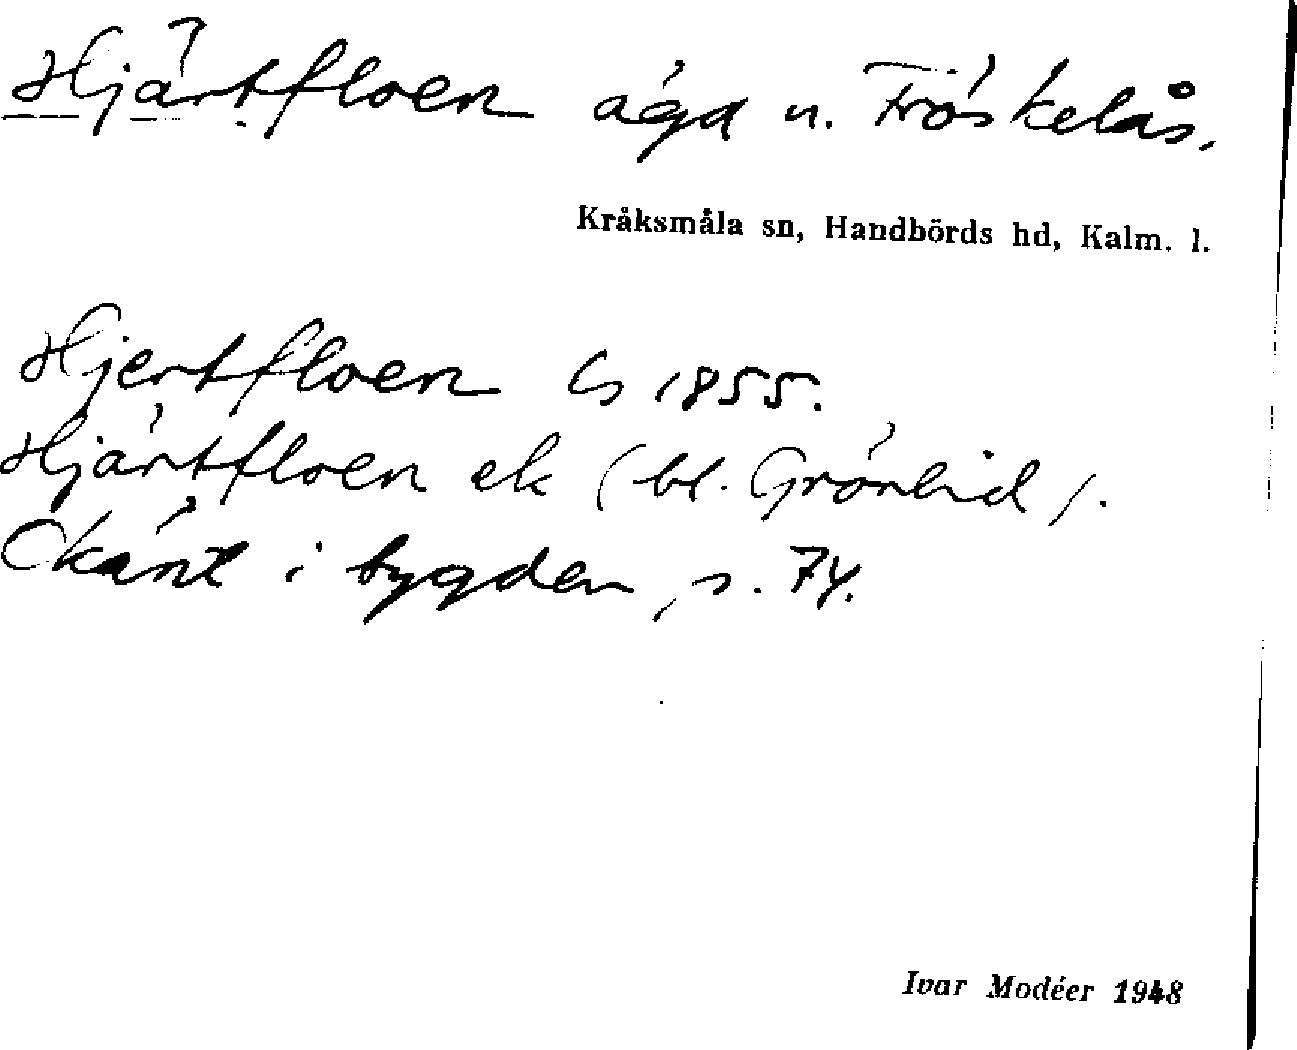 Hjärtfloen äga u. Fröskelås.
Kråksmåla sn, Handbörds hd, Kalm. l.
Hjertfloen Ls 1855.
Hjärtfloen ek (bl. Grönlid).
Okänt i bygden, s. 74.
Ivar Modéer 1948